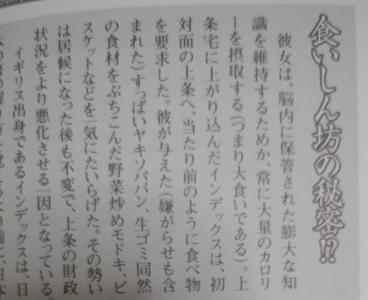 食いしん坊の秘密!!
彼女は、脳内に保管された膨大な知
識を維持するためか、常に大量のカロリ
ーを摂取する(つまり大食いである)。上
条宅に上がり込んだインデックスは、初
対面の上条へ、当たり前のように食べ物
を要求した。彼が与えた(嫌がらせも含
まれた)すっぱいヤキソバパン、生ゴミ同然
の食材をぶちこんだ野菜炒めモドキ、ビ
スケットなどを一気にたいらげた。その勢い
は居候になった後も不変で、上条の財政
状況をより悪化させる一因となっている。
イギリス出身であるインデックスは、日